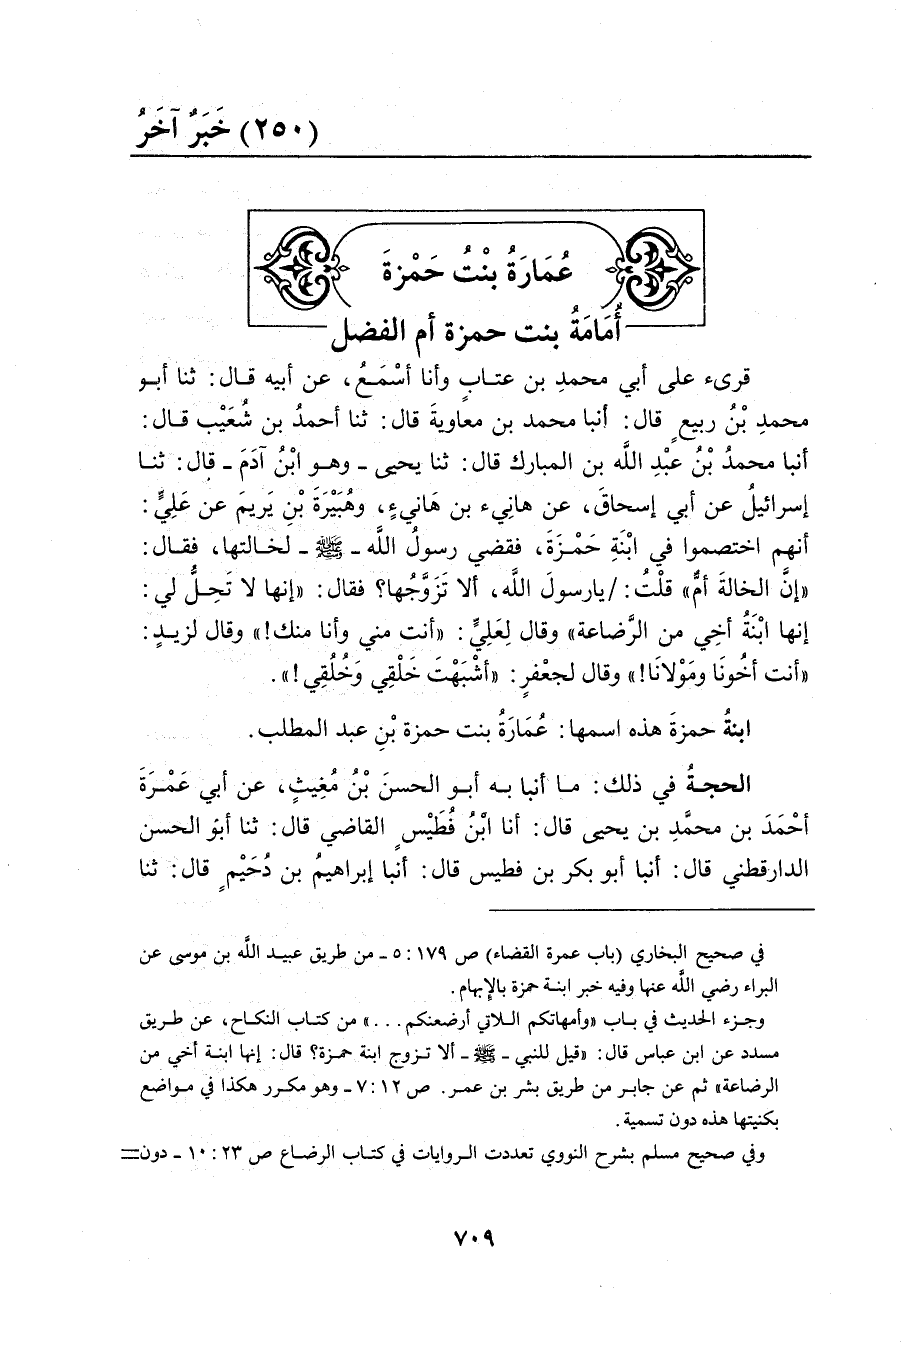 (٢٥٠) خَبَرٌ آخَرُ
عُمَارَةُ بنْتُ حَمْزةَ
أُمَامَةُ بنت حمزة أم الفضل
قرىء على أبي محمدِ بن عتابٍ وأنا أسْمَـعُ، عن أبيه قـال: ثنا أبـو
محمدِ بْنُ ربيعٍ قال: أنبا محمد بن معاويةَ قال: ثنا أحمدُ بن شُعَيْب قـال:
أنبا محمدُ بْنُ عبْدِ اللَّه بن المبارك قال: ثنا يحيى ـ وهـو ابْنُ آدَمَ ـ قال: ثنـا
إسرائيلُ عن أبي إسحاقَ، عن هانِيء بن هَانيءٍ، وهُبَيْرَةَ بْنِ يَريمَ عن عَلِيٍّ:
أنهم اختصموا في ابْنَةِ حَمْـزَةَ، فقضي رسولُ اللَّه ـ ﷺ ـ لخـالتها، فقـال:
«إنَّ الخالةَ أمٌّ» قلْتُ: /يارسولَ اللَّه، ألا تَزَوَّجُها؟ فقال: «إنها لا تَحِـلُّ لي:
إنها ابْنَةُ أخِي من الرَّضاعة» وقال لِعَلِيٍّ: «أنت مني وأنا منك!» وقال لزيـدٍ:
«أنت أخُونَا ومَوْلانَا!» وقال لجعْفرٍ: «أشْبَهْتَ خَلْقِي وَخُلُقِي!».
ابنةُ حمزةَ هذه اسمها: عُمَارَةُ بنت حمزة بْنِ عبد المطلب.
الحجـةُ في ذلك: مـا أنبا بـه أبـو الحسنَ بْنُ مُغيثٍ، عن أبي عَمْـرَةَ
أحْمَدَ بن محمَّدِ بن يحيى قال: أنا ابْنُ فُطَيْسٍ القاضي قال: ثنا أبوْ الحسن
الدارقطني قال: أنبا أبو بكر بن فطيس قال: أنبا إبراهيمُ بن دُحَيْمٍ قال: ثنا
في صحيح البخاري (باب عمرة القضاء) ص ١٧٩: ٥ ـ من طريق عبيـد اللَّه بن موسى عن
البراء رضي اللَّه عنها وفيه خبر ابنـة حمزة بالإبهام.
وجـزء الحديث في بـاب «وأمهاتكم الـلاتي أرضعنكم...» من كتـاب النكـاح، عن طـريق
مسدد عن ابن عباس قال: «قيل للنبي ـ ﷺ ـ ألا تـزوج ابنة حمـزة؟ قال: إنها ابنـة أخي من
الرضاعة» ثم عن جابـر من طريق بشر بن عمـر. ص ١٢: ٧ ـ وهو مكرر هكذا في مـواضع
بكنيتها هذه دون تسمية.
وفي صحيح مسلم بشرح النووي تعددت الـروايات في كتـاب الرضـاع ص ٢٣: ١٠ ـ دون=
٧٠٩